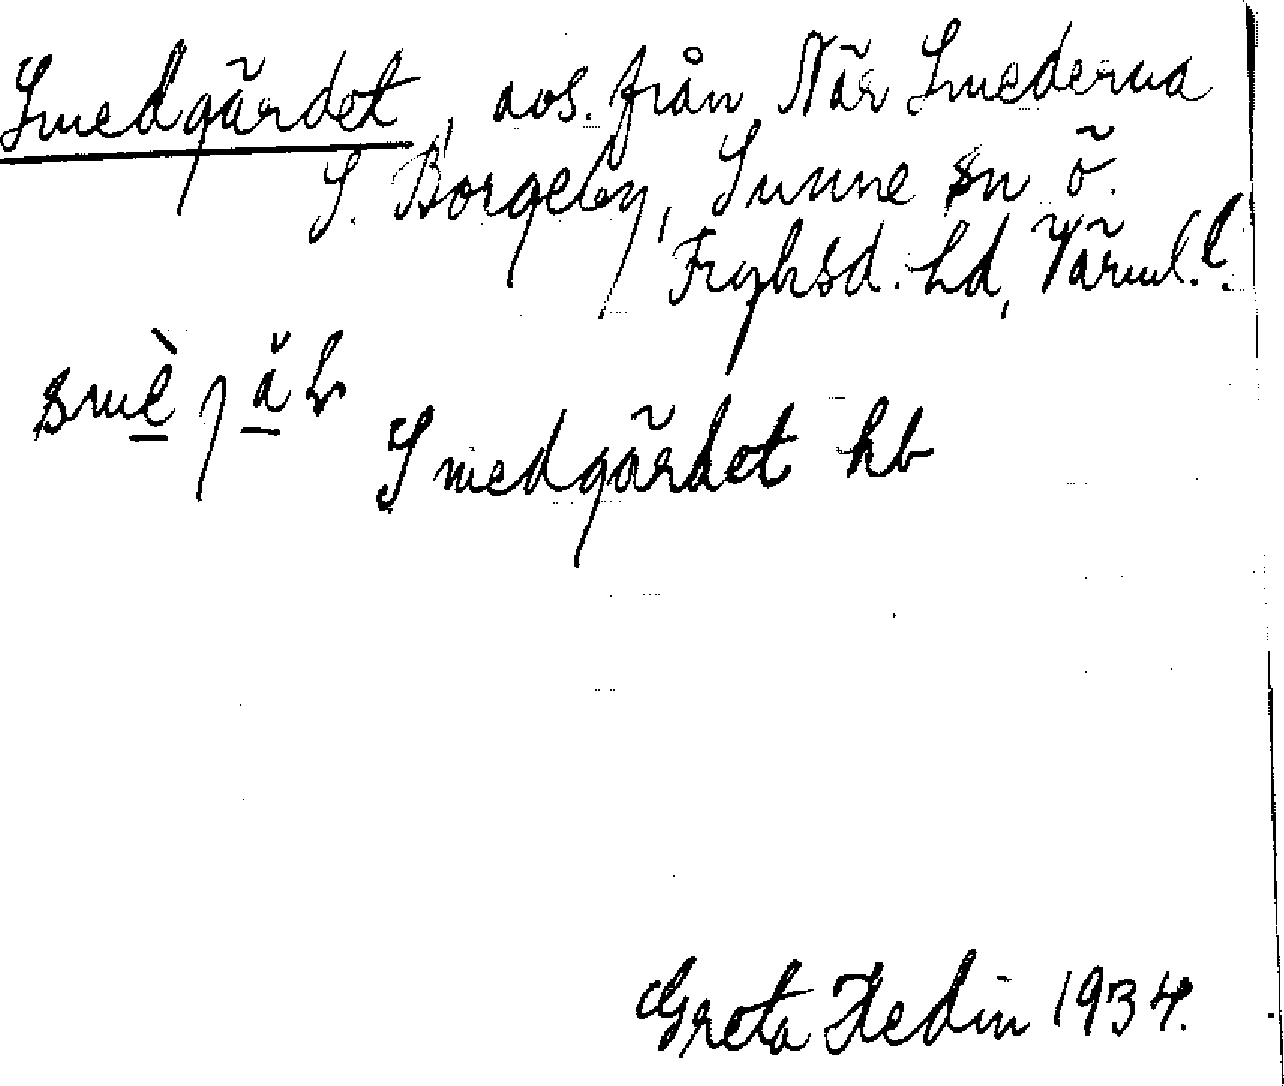 Smedgärdet, avs. från När Smederna
S. Borgeby, Sunne sn Ö.
Fryksd. hd, Värml. l.
Smedgärdet hb
Greta Hedin 1934.